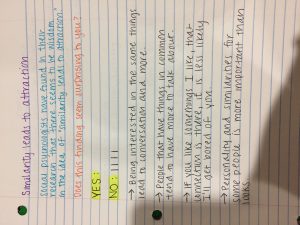 Similarity leads to attraction
Social psychologists have found in their
research that there seems to be wisdom
in the idea of "similarity leads to attraction."
Does this finding seem surprising to you?
YES:
NO: ||||
→ Being interested in the same things
lead to conversation and more
→ People that have things in common
tend to have more to talk about.
→ If you like somethings I like, that
somethings is there, it is less likely
I'll get bored of you
→ Personality and similarities for
some people is more important than
looks